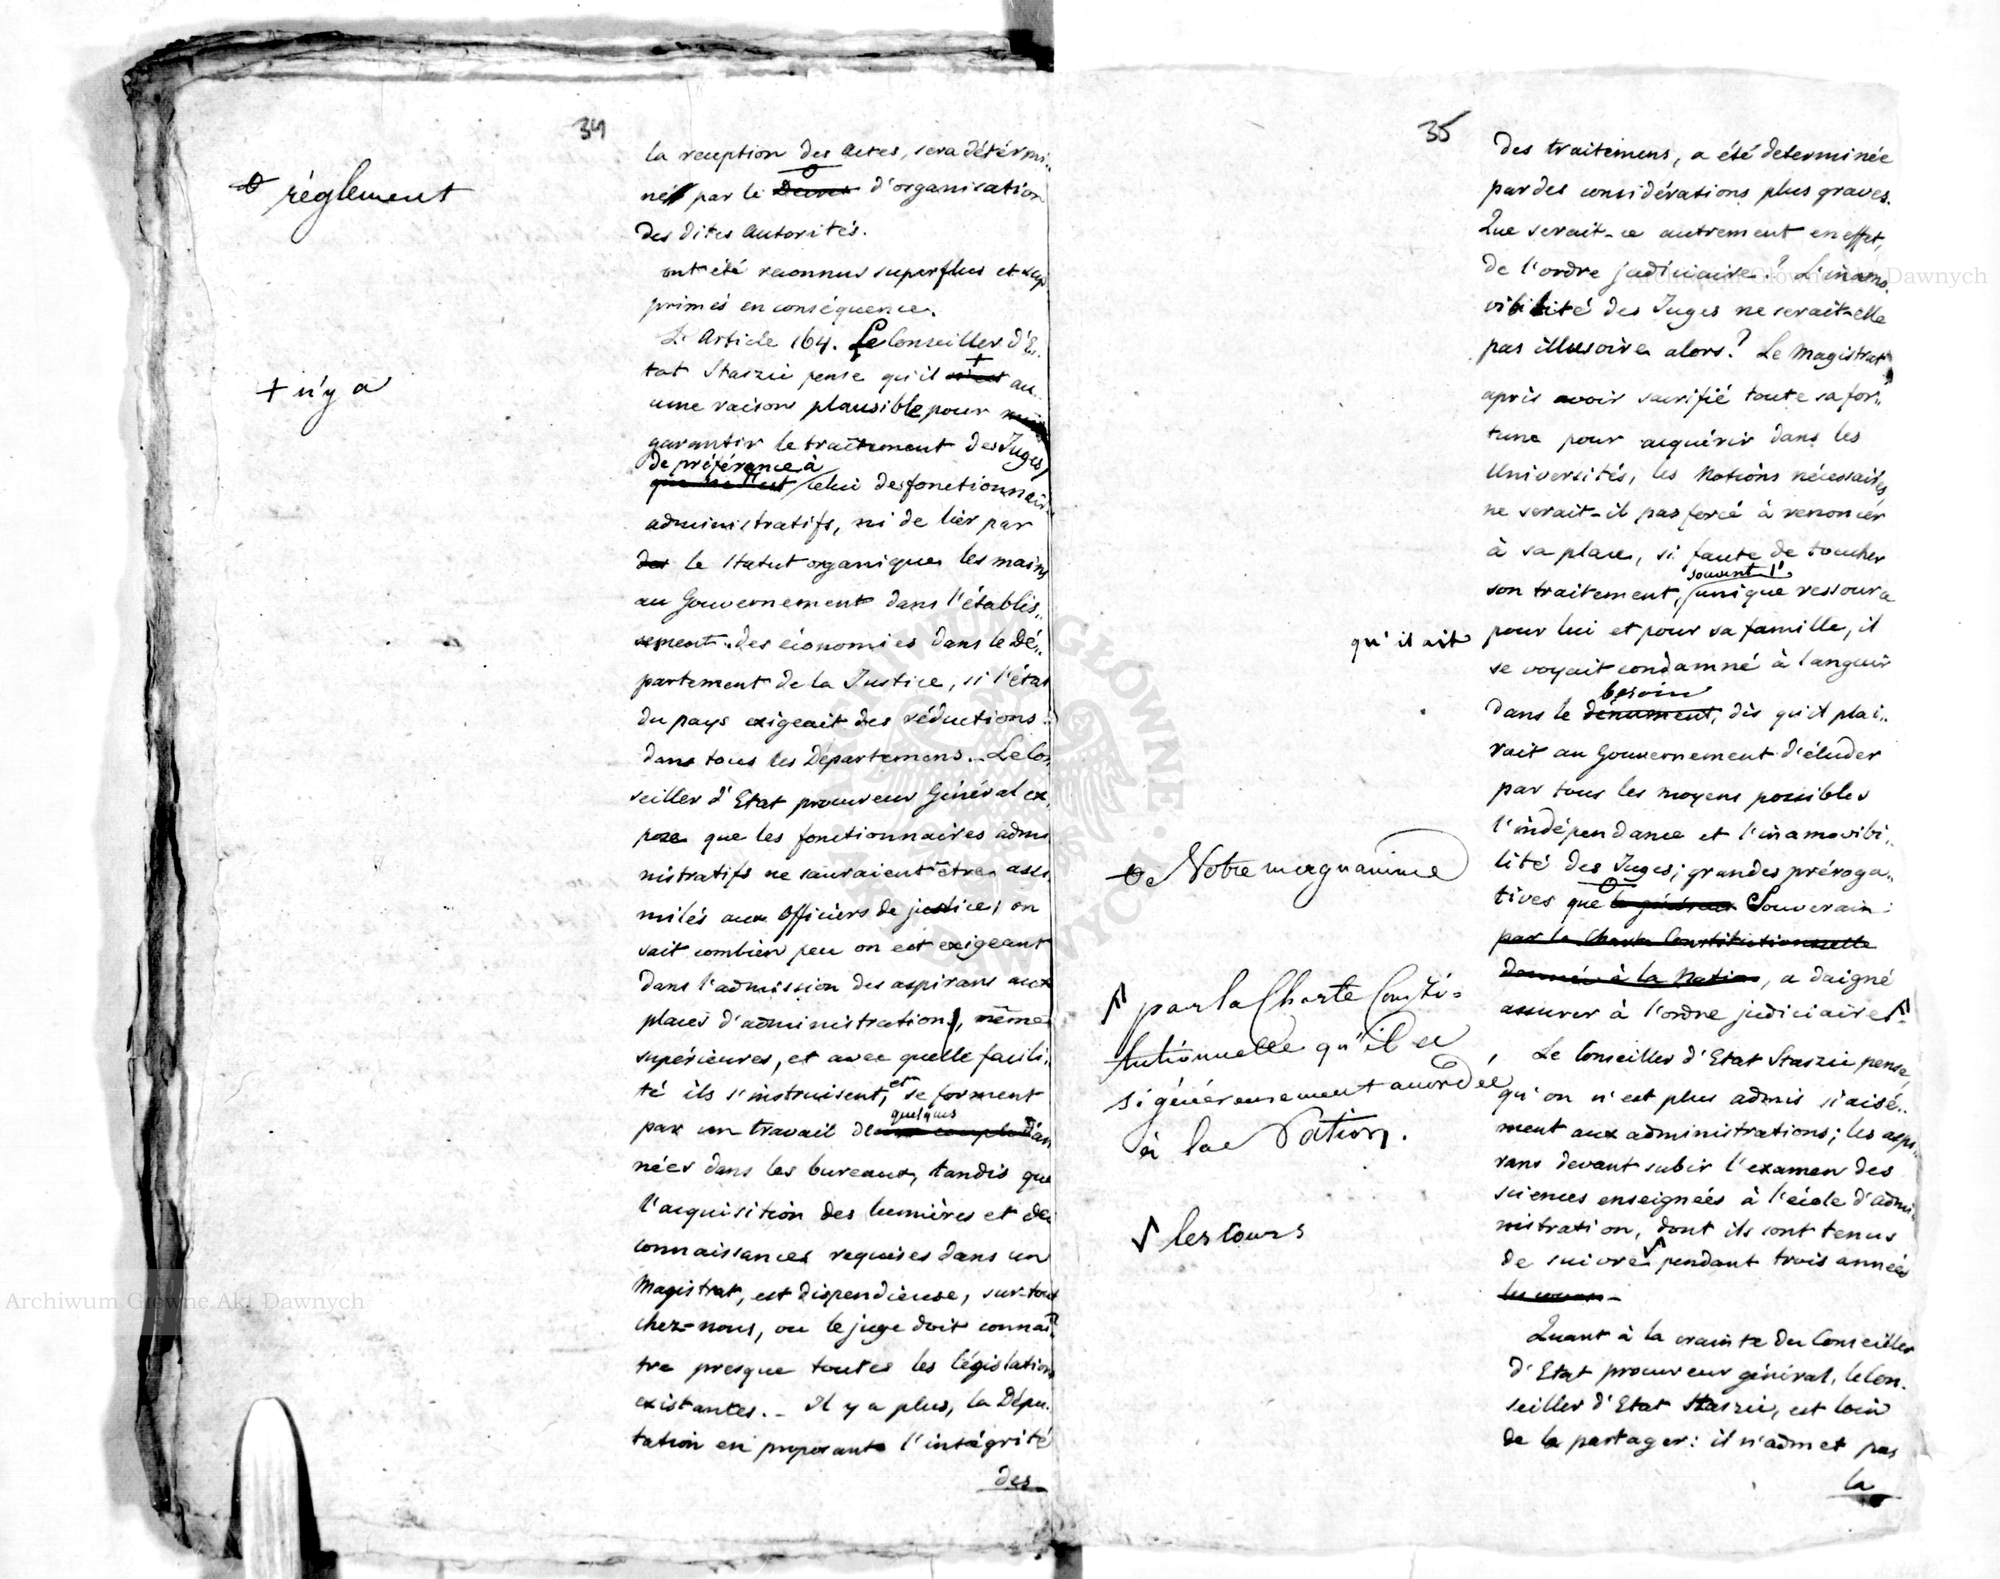 34
⊕ réglement
+ n'y a
la reception des Actes, sera détérmi„
né par le Decret d'organisation
des dites Autorités.
ont été reconnus superflus et sup
primés en conséquence.
L'Article 164. Le Conseiller d'E„
tat Staszic pense qu'il au
cune raison plausible pour
garantir le traitement des Juges
de préférence à
celui des fonctionnair
administratifs, ni de lier par
des le Statut organique les mains
au Gouvernement dans l'établis„
sement des économies dans le Dé„
partement de la Justice, si l'état
du pays exigeait des réductions
dans tous les Départemens. Le Con
seiller d'Etat procureur Général ex
pose que les fonctionnaires admi
nistratifs ne sauraient être assi
milés aux Officiers de justice; on
sait combien peu on est exigeant
dans l'admission des aspirans aux
places d'administration, même
supérieures, et avec quelle facili„
té ils s'instruisent, et se forment
quelques
par un travail de d'an
nées dans les bureaux, tandis que
l'acquisition des lumières et des
connaissances requises dans un
Magistrat, est dispendieuse, sur-tout
chez-nous, ou le juge doit connai„
tre presque toutes les législations
existantes. - Il y a plus, la Dépu„
tation en proposant l'intégrité
des
35
des traitemens, a été determinée
par des considérations plus graves.
Que serait-ce autrement en effet,
de l'ordre judiciaire? L'inamo„
vibilité des Juges ne serait-elle
pas illusoire alors? Le Magistrat
après avoir sacrifié toute sa for„
tune pour acquérir dans les
Universités, les Notions nécessaires,
ne serait-il pas forcé à renoncer
à sa place, si faute de toucher
souvent l'
son traitement, unique ressource
qu'il ait
pour lui et pour sa famille, il
se voyait condamné à languir
besoin
dans le dénument, dès qu'il plai„
rait au Gouvernement d'éluder
par tous les moyens possibles
l'indépendance et l'inamovibi„
lité des Juges; grandes préroga„
⊕ Notre magnanime
tives que le généreux Souverain
par la Charte Constitutionnelle
donnée à la Nation, a daigné
assurer à l'ordre judiciaire
par la Charte Consti=
tutionnelle qu'il a
si généreusement accordée
à la Nation.
Le Conseiller d'Etat Staszic pense,
qu'on n'est plus admis si aisé„
ment aux administrations; les aspi„
rans devant subir l'examen des
sciences enseignées à l'école d'admi„
nistration, dont ils sont tenus
les cours
de suivre pendant trois années
les cours -
Quant à la crainte du Conseiller
d'Etat procureur général, le Con„
seiller d'Etat Staszic, est loin
de la partager: il n'admet pas
la
Archiwum Główne Akt Dawnych
Archiwum Główne Akt Dawnych